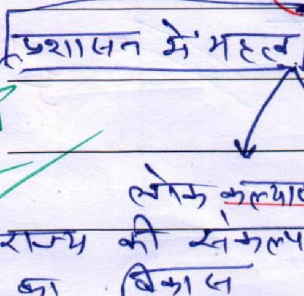 प्रशासन में महत्व
लोक कल्याण
राज्य की संकल्प
का विकास